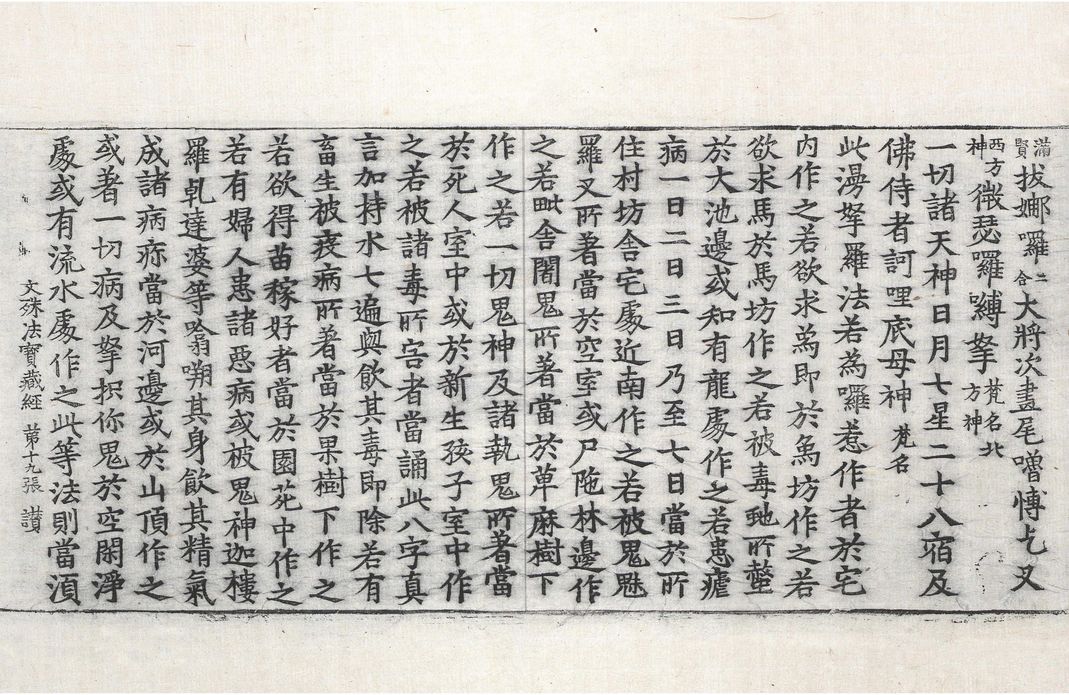 滿賢拔娜囉二合大將次畫尾嚕愽乞叉
西方神微瑟囉嚩拏梵名北方神
一切諸天神日月七星二十八宿及
佛侍者訶哩底母神梵名
此漫拏羅法若為囉惹作者於宅
内作之若欲求為即於魚坊作之若
欲求馬於馬坊作之若被毒虵所螫
於大池邊或知有龍處作之若患瘧
病一日二日三日乃至七日當於所
住村坊舍宅處近南作之若被鬼魅
羅叉所著當於空室或尸陁林邊作
之若毗舍闍鬼所著當於萆麻樹下
作之若一切鬼神及諸執鬼所著當
於死人室中或於新生孩子室中作
之若被諸毒所害者當誦此八字真
言加持水七遍與飲其毒即除若有
畜生被疫病所著當於果樹下作之
若欲得苗稼好者當於園苑中作之
若有婦人患諸惡病或被鬼神迦樓
羅乹達婆等唅嗡嗍其身飲其精氣
成諸病疢當於河邊或於山頂作之
或著一切病及拏枳你鬼於空閑淨
處或有流水處作之此等法則當湏
文殊法寶藏經 苐十九張 讃